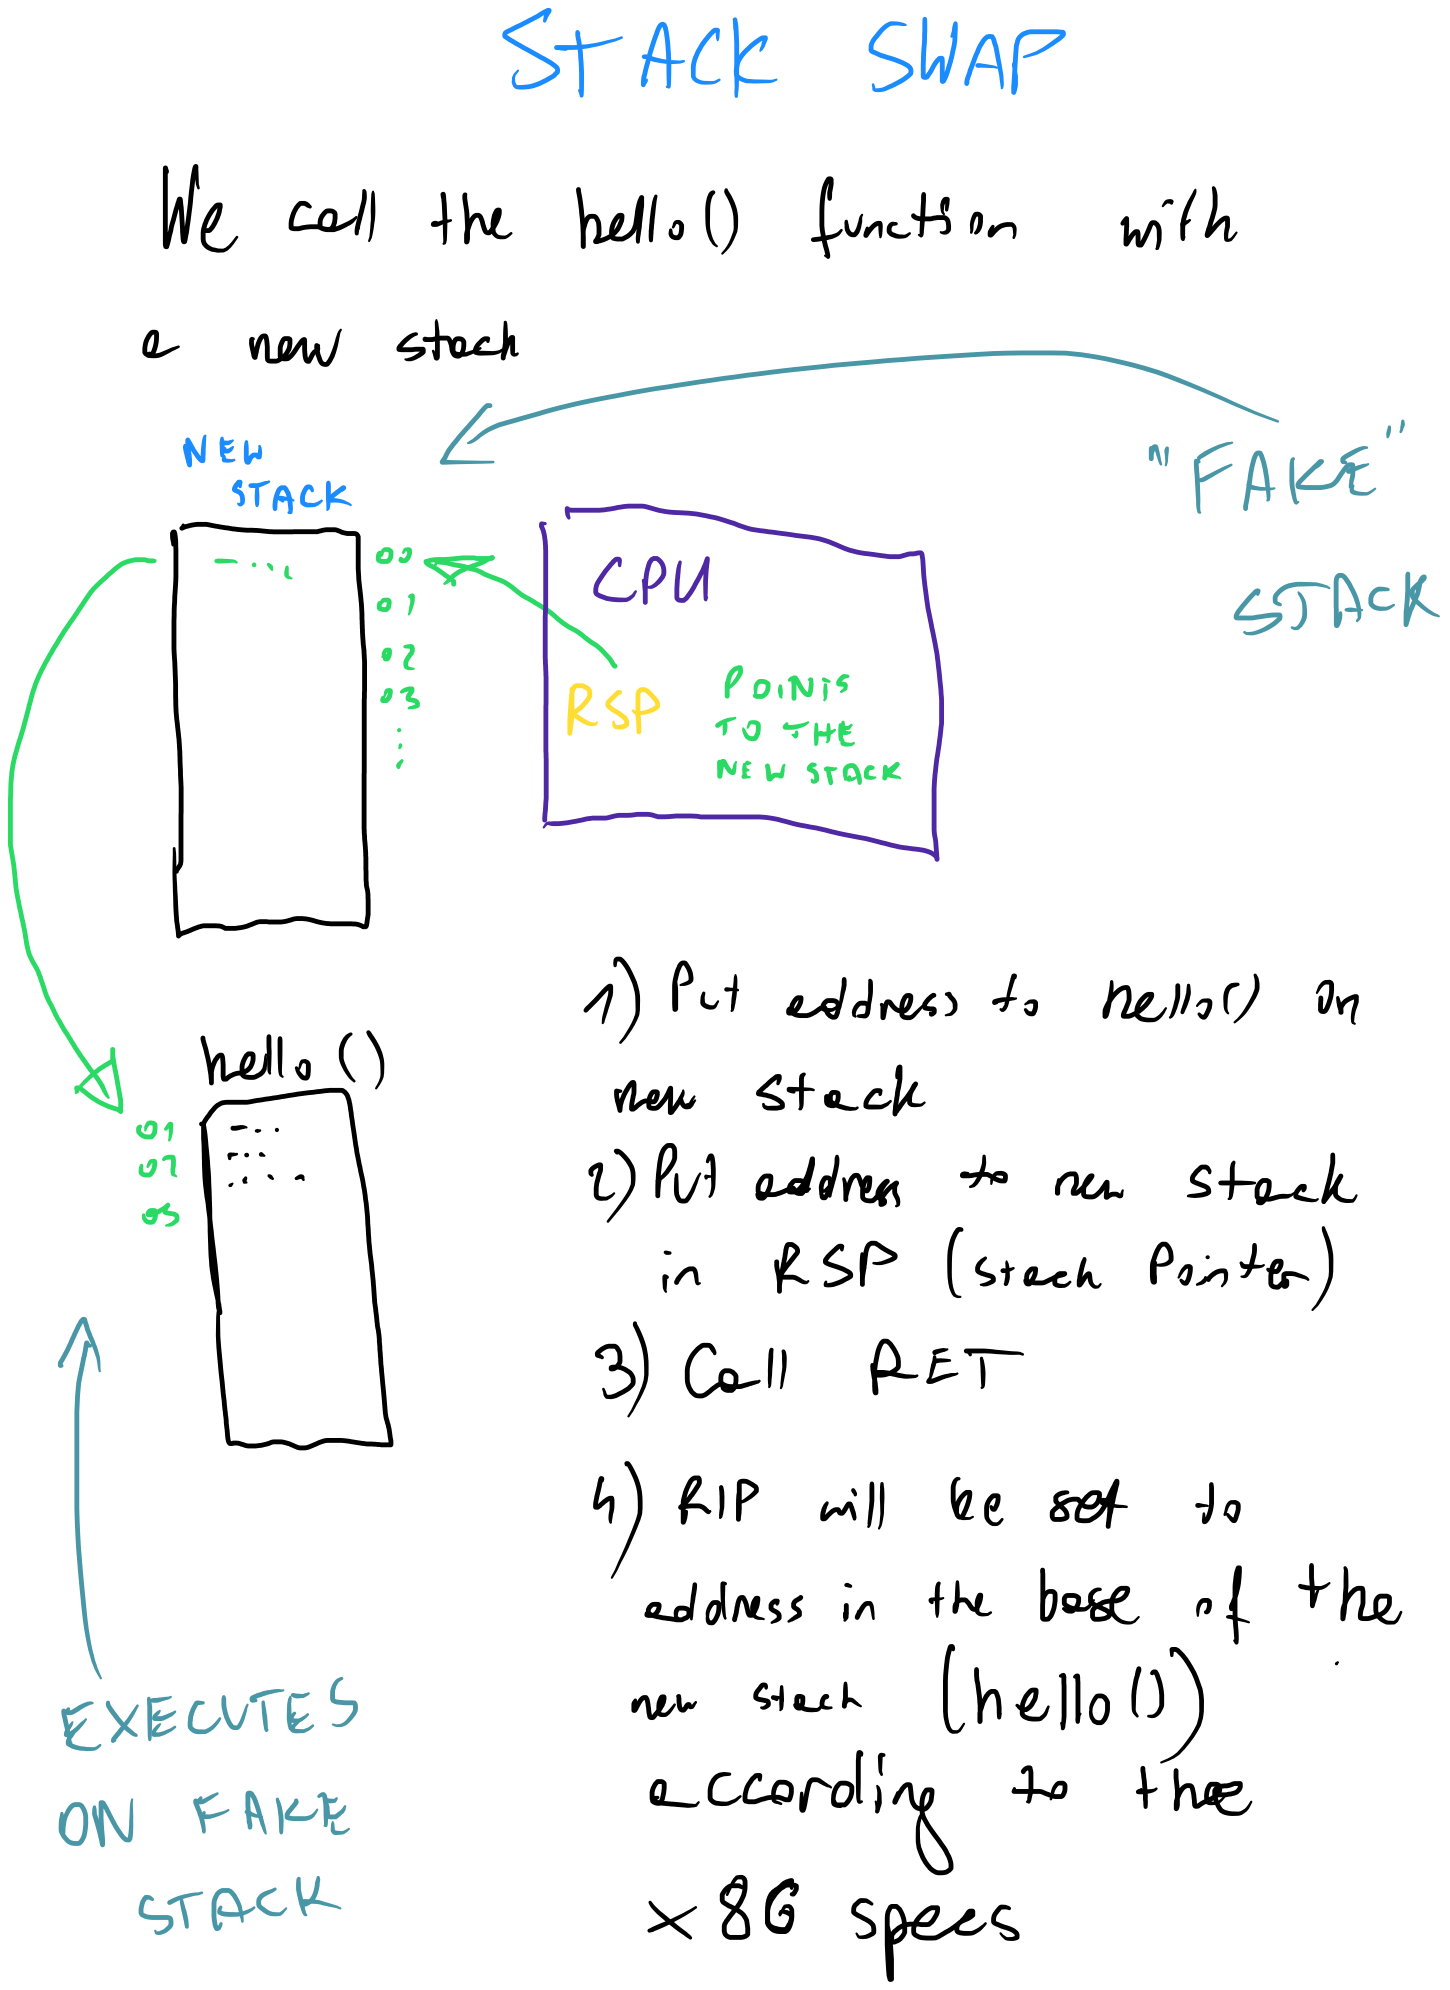 STACK SWAP
We call the hello() function with
a new stack
"FAKE"
STACK
NEW
STACK
00
01
02
03
CPU
RSP
POINTS
TO THE
NEW STACK
1) Put address to hello() on
new stack
2) Put address to new stack
in RSP (stack Pointer)
3) Call RET
4) RIP will be set to
address in the base of the
new stack (hello())
according to the
x86 specs
hello()
01
02
03
EXECUTES
ON FAKE
STACK